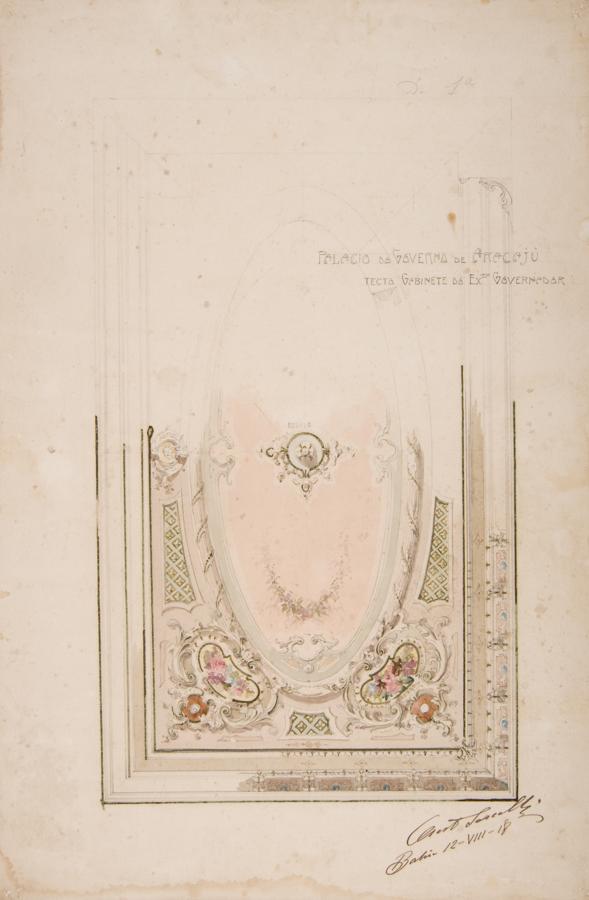 1ª
PALACIO DO GOVERNO DE ARACAJÚ
TECTO GABINETE DO EXᵐᵒ GOVERNADOR
Bahia 12-VIII-18